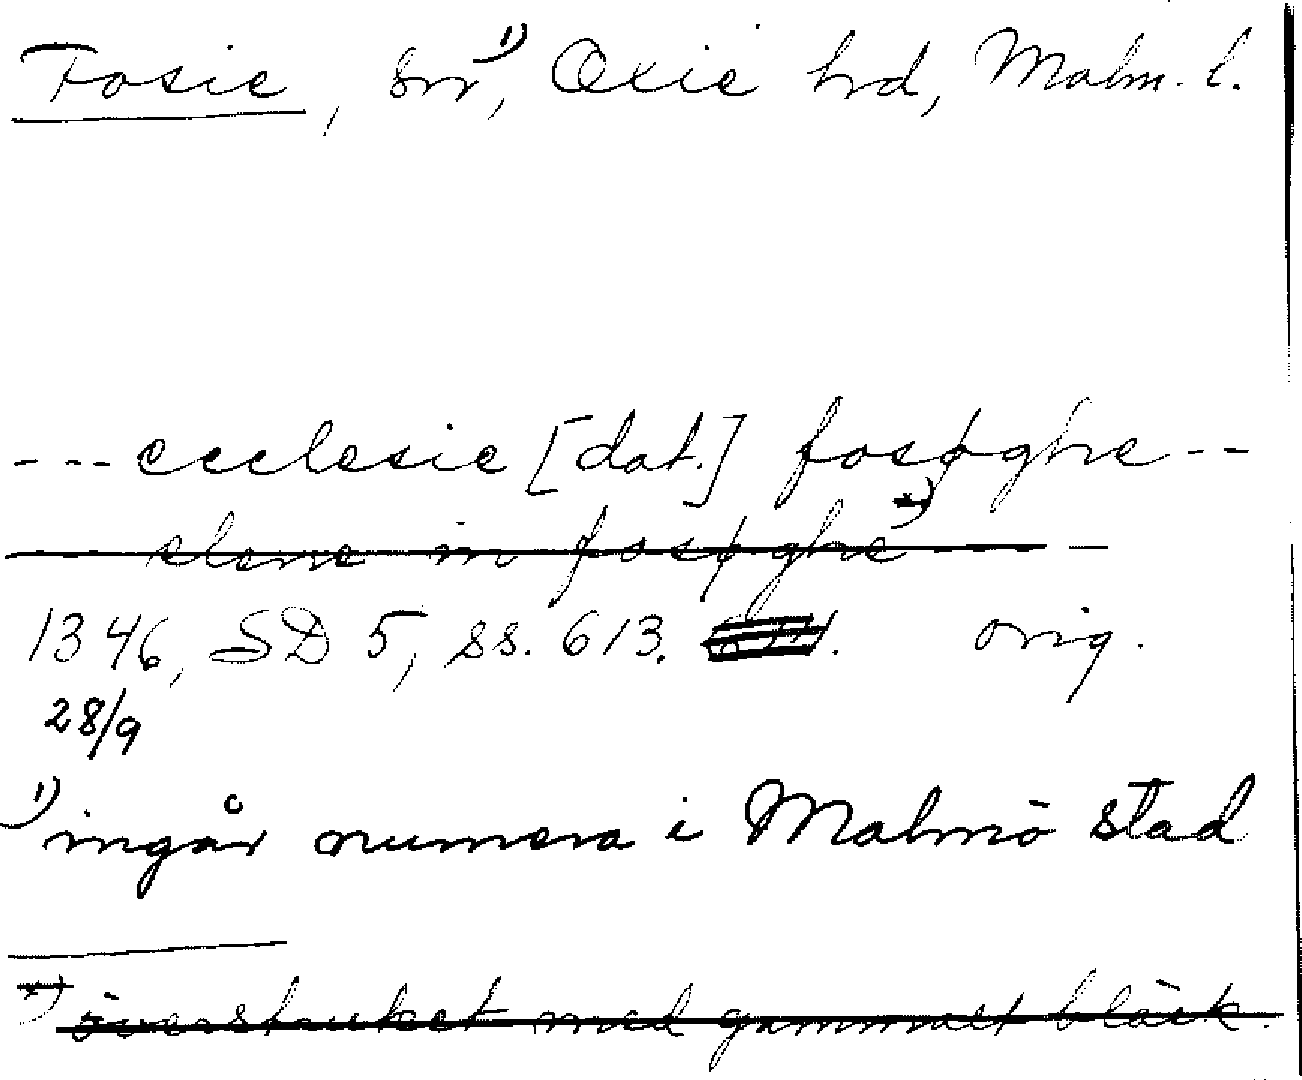 Fosie, sn¹⁾, Oxie hrd, Malm. l.
--- ecclesie [dat.] fosøghe --
--- elemo in fosøghe *) ---
1346, SD 5, ss. 613. orig.
28/9
¹⁾ ingår numera i Malmö stad
*) överstruket med gammalt bläck.